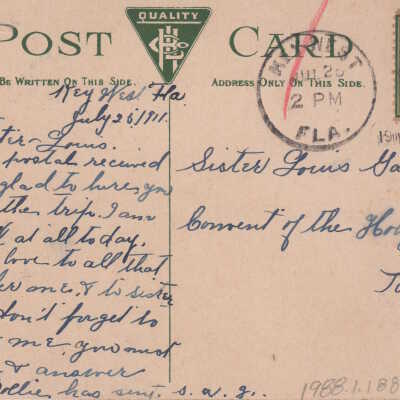 POST CARD
QUALITY
BE WRITTEN ON THIS SIDE.
ADDRESS ONLY ON THIS SIDE.
KEY WEST
JUL 26
2 PM
FLA.
Key West Fla
July 26/1911.
Louis.
postal received
glad to
the trip. I am
at all today.
love to all that
one, & to sister
don't forget to
me, you must
& answer
has sent. s. a. g.
Sister Louis Ga
Convent of the Ho
1988.1.188